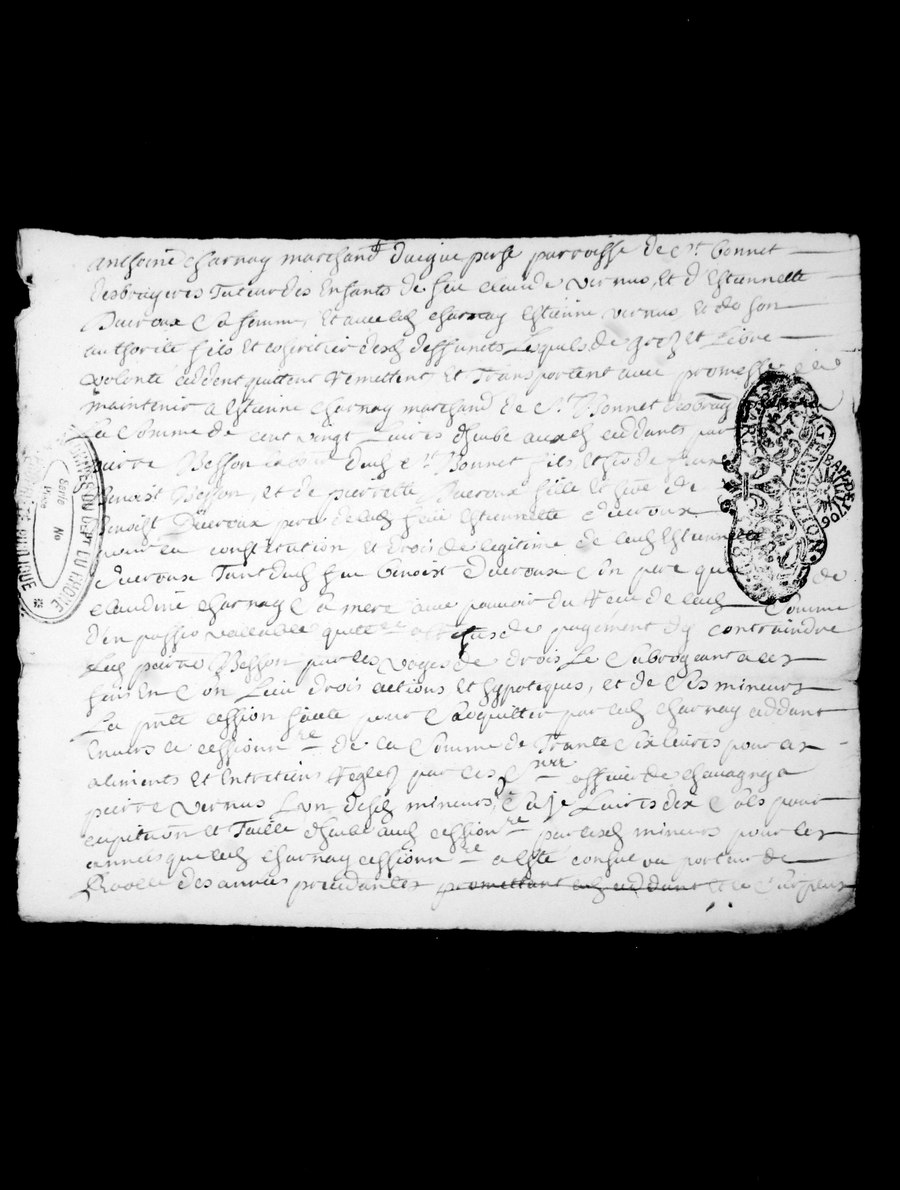 Anthoine Charnay marchand daigueperse parroisse de St Bonnet
desbruyeres Tuteur des Enfants de feu claude vernus, Et d'Estiennette
Ducroux Sa femme, Et avec led charnay Estienne vernus Et de son
authorité fils Et coheritier desd deffuncts Lesquels de grez Et Libre
volonté ceddent quittent remettent Et Transportent avec promesse de
maintenir a Estienne charnay marchand de St Bonnet desbruy
La Somme de cent vingt Livres dheube auxd ceddants par
pierre Besson dud St Bonnet fils Et de feux
Benoist Besson, Et de pierrette Ducroux fille Et de
Benoist Ducroux pere de lad feue Estiennette Ducroux
pour la constitution Et drois de legitime de lad Estiennette
Ducroux Tant dud feu Benoist Ducroux Son pere que de
claudine charnay Sa mere avec pouvoir du receu de lad Somme
d'en passer vallable quitt.ce a reffus de payement dy contraindre
Led pierre Besson par les voyes de drois Le Subrogeant a ces
fins En Son Lieu drois actions Et hypoteques, et de Ses mineurs
La pnte cession faitte pour S'acquitter par led charnay ceddant
Envers le cessionn.re de la Somme de Trante Six Livres pour les
aliments Et Entretiens reglez par les officier de chavagny a
pierre vernus L'un desd mineurs, Livres dix Sols pour
capitation et Taille dheube aud cession.re par lesd mineurs pour les
années que led charnay cessionn.re a Esté consul ou porteur de
Roolle des années precedantes promettant led ceddant
ARCHIVES DU DEPT DU RHONE
Serie
No
GENERALITE